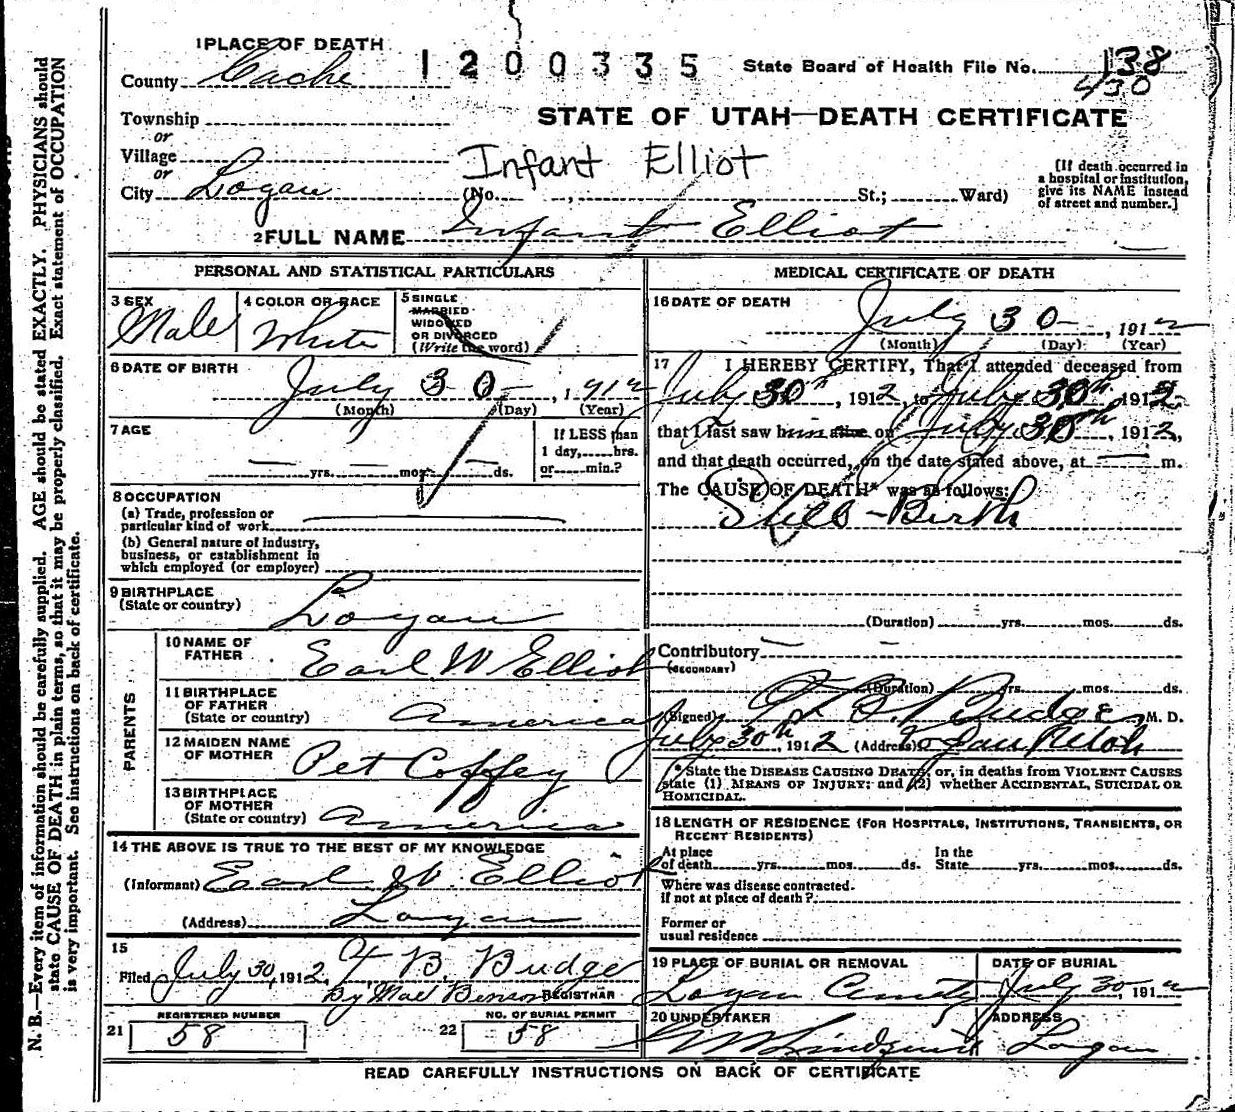 1 PLACE OF DEATH
County Cache
1200335
State Board of Health File No. 138
430
Township
or
STATE OF UTAH—DEATH CERTIFICATE
Village
or
Infant Elliot
City Logan (No. , St.; Ward)
[If death occurred in a hospital or institution, give its NAME instead of street and number.]
2 FULL NAME Infant Elliot
PERSONAL AND STATISTICAL PARTICULARS
3 SEX
Male
4 COLOR OR RACE
White
5 SINGLE
MARRIED
WIDOWED
OR DIVORCED
(Write the word)
6 DATE OF BIRTH
July 30 , 1912
(Month) (Day) (Year)
7 AGE
If LESS than
1 day, hrs.
or min.?
yrs. mos. ds.
8 OCCUPATION
(a) Trade, profession or
particular kind of work
(b) General nature of industry,
business, or establishment in
which employed (or employer)
9 BIRTHPLACE
(State or country) Logan
PARENTS
10 NAME OF
FATHER Earl W Elliot
11 BIRTHPLACE
OF FATHER
(State or country) America
12 MAIDEN NAME
OF MOTHER Pet Coffey
13 BIRTHPLACE
OF MOTHER
(State or country) America
14 THE ABOVE IS TRUE TO THE BEST OF MY KNOWLEDGE
(Informant) Earl W. Elliot
(Address) Logan
15
Filed July 30, 1912 B. Budge
By Mae Benson REGISTRAR
REGISTERED NUMBER
21 58
NO. OF BURIAL PERMIT
22 58
MEDICAL CERTIFICATE OF DEATH
16 DATE OF DEATH
July 30 , 1912
(Month) (Day) (Year)
17 I HEREBY CERTIFY, That I attended deceased from
July 30th, 1912, to July 30th, 1912
that I last saw him alive on July 30th, 1912,
and that death occurred, on the date stated above, at m.
The CAUSE OF DEATH* was as follows:
Still-Birth
(Duration) yrs. mos. ds.
Contributory
(SECONDARY)
(Duration) yrs. mos. ds.
(Signed) Budge M. D.
July 30th, 1912 (Address) Logan Utah
* State the DISEASE CAUSING DEATH, or, in deaths from VIOLENT CAUSES
state (1) MEANS OF INJURY; and (2) whether ACCIDENTAL, SUICIDAL OR
HOMICIDAL.
18 LENGTH OF RESIDENCE (FOR HOSPITALS, INSTITUTIONS, TRANSIENTS, OR
RECENT RESIDENTS)
At place In the
of death yrs. mos. ds. State yrs. mos. ds.
Where was disease contracted.
if not at place of death?
Former or
usual residence
19 PLACE OF BURIAL OR REMOVAL
Logan
DATE OF BURIAL
July 30, 1912
20 UNDERTAKER
Lindquist
ADDRESS
Logan
READ CAREFULLY INSTRUCTIONS ON BACK OF CERTIFICATE
N. B.—Every item of information should be carefully supplied. AGE should be stated EXACTLY. PHYSICIANS should
state CAUSE OF DEATH in plain terms, so that it may be properly classified. Exact statement of OCCUPATION
is very important. See instructions on back of certificate.